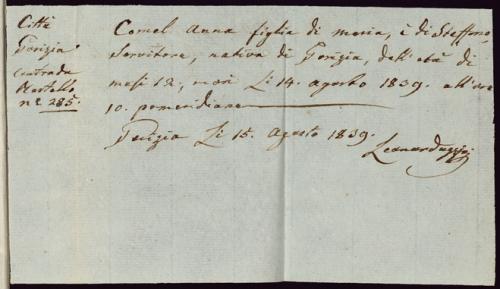 Città
Gorizia
contrada
Rastello
nº 285.
Comel Anna figlia di Maria, e di Steffano
Servitore, nativa di Gorizia, dell'età di
mesi 12, morì li 14. agosto 1839. all'ore
10. pomeridiane
Gorizia li 15. Agosto 1839.